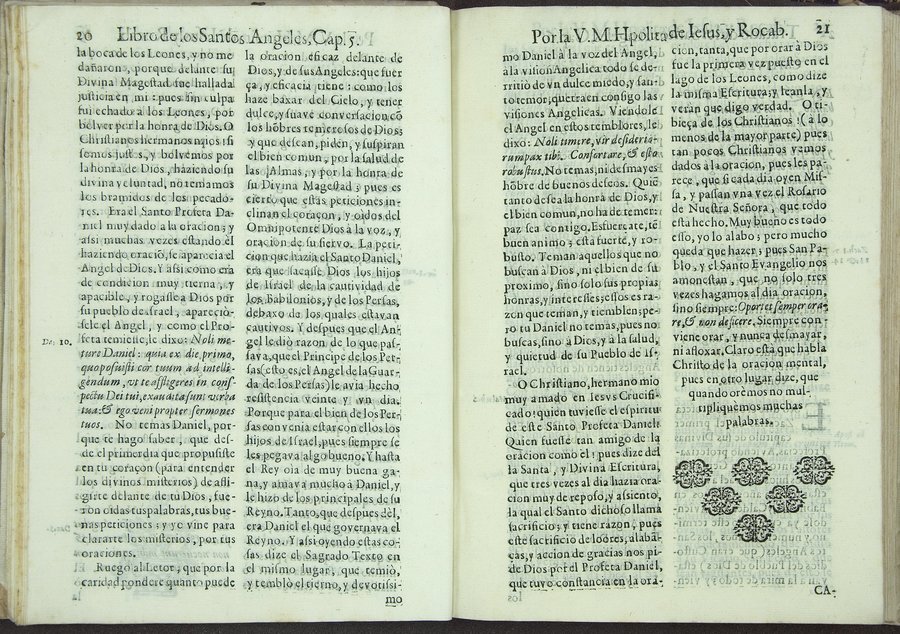 20 Libro de los Santos Angeles, Cap. 5.
la boca de los Leones, y no me
dañaron, porque delante su
Divina Magestad fue hallada
justicia en mi: pues sin culpa
fui echado a los Leones, por
bolver por la honra de Dios. O
Christianos hermanos mios! si
somos justos, y bolvemos por
la honra de Dios, haziendo su
divina voluntad, no temamos
los bramidos de los pecado-
res. Era el Santo Profeta Da-
niel muy dado a la oracion; y
assi muchas vezes estando èl
haziendo oraciõ, se aparecia el
Angel de Dios. Y assi como era
de condicion muy tierna, y
apacible, y rogasse a Dios por
su pueblo de Israel, apareciò-
sele el Angel, y como el Pro-
feta temiesse, le dixo: Noli me-
Da. 10.
ture Daniel: quia ex die primo,
quo posuisti cor tuum ad intelli-
gendum, ut te affligeres in cons-
pectu Dei tui, exaudita sunt verba
tua: & ego veni propter sermones
tuos. No temas Daniel, por-
que te hago saber, que des-
de el primer dia que propusiste
en tu coraçon (para entender
los divinos misterios) de afli-
girte delante de tu Dios, fue-
ron oidas tus palabras, tus bue-
nas peticiones; y yo vine para
clararte los misterios, por tus
oraciones.
Ruego al Letor, que por la
caridad pondere quanto puede
la oracion eficaz delante de
Dios, y de sus Angeles: que fuer
ça, y eficacia tiene: como los
haze baxar del Cielo, y tener
dulce, y suave conversacion cõ
los hõbres temerosos de Dios;
y que desean, piden, y suspiran
el bien comun, por la salud de
las Almas, y por la honra de
su Divina Magestad; pues es
cierto que estas peticiones in-
clinan el coraçon, y oidos del
Omnipotente Dios a la voz, y
oracion de su siervo. La peti-
cion que hazia el Santo Daniel,
era que sacasse Dios los hijos
de Israel de la cautividad de
los Babilonios, y de los Persas,
debaxo de los quales estavan
cautivos. Y despues que el An-
gel le diò razon de lo que pas-
sava, que el Principe de los Per-
sas (esto es, el Angel de la Guar-
da de los Persas) le avia hecho
resistencia veinte y vn dia.
Porque para el bien de los Per-
sas convenia estar con ellos los
hijos de Israel, pues siempre se
les pegava algo bueno. Y hasta
el Rey oia de muy buena ga-
na, y amava mucho a Daniel, y
le hizo de los principales de su
Reyno. Tanto, que despues dèl,
era Daniel el que governava el
Reyno. Y assi oyendo estas co-
sas dize el Sagrado Texto en
el mismo lugar, que temiò,
y temblò el tierno, y devotissi-
mo
Por la V. M. Hipolita de Iesus, y Rocab. 21
mo Daniel à la voz del Angel,
à la vision Angelica todo se de-
rritiò de vn dulce miedo, y san-
to temor, que traen consigo las
visiones Angelicas. Viendole
el Angel en estos temblores, le
dixo: Noli timere, vir desiderio-
rum pax tibi. Confortare, & esto
robustus. No temas, ni desmayes
hõbre de buenos deseos. Quiẽ
tanto desea la honra de Dios, y
el bien comun, no ha de temer:
paz sea contigo. Esfuerçate, tẽ
buen animo; està fuerte, y ro-
busto. Teman aquellos que no
buscan à Dios, ni el bien de su
proximo, sino solo sus propias
honras, y interesses; essos es ra-
zon que teman, y tiemblen; pe-
ro tu Daniel no temas, pues no
buscas, sino à Dios, y à la salud,
y quietud de su Pueblo de Is-
rael.
O Christiano, hermano mio
muy amado en Iesvs Crucifi-
cado! quien tuviesse el espiritu
de este Santo Profeta Daniel!
Quien fuesse tan amigo de la
oracion como èl! pues dize del
la Santa, y Divina Escritura,
que tres vezes al dia hazia ora-
cion muy de reposo, y assiento,
la qual el Santo dichoso llama
sacrificio; y tiene razon; pues
este sacrificio de loores, alabã-
ças, y accion de gracias nos pi-
de Dios por el Profeta Daniel,
que tuvo constancia en la ora-
cion, tanta, que por orar à Dios
fue la primera vez puesto en el
lago de los Leones, como dize
la misma Escritura; y leanla, y
veran que digo verdad. O ti-
bieça de los Christianos! (à lo
menos de la mayor parte) pues
tan pocos Christianos vemos
dados à la oracion, pues les pa-
rece, que si cada dia oyen Mis-
sa, y passan vna vez el Rosario
de Nuestra Señora, que todo
està hecho. Muy bueno es todo
esso, yo lo alabo; pero mucho
queda que hazer; pues San Pa-
blo, y el Santo Evangelio nos
amonestan, que no solo tres
vezes hagamos al dia oracion,
sino siempre: Oportet semper ora-
re, & non deficere. Siempre con-
viene orar, y nunca desmayar,
ni afloxar. Claro està que habla
Christo de la oracion mental,
pues en otro lugar dize, que
quando orèmos no mul-
tipliquemos muchas
palabras.
CA-